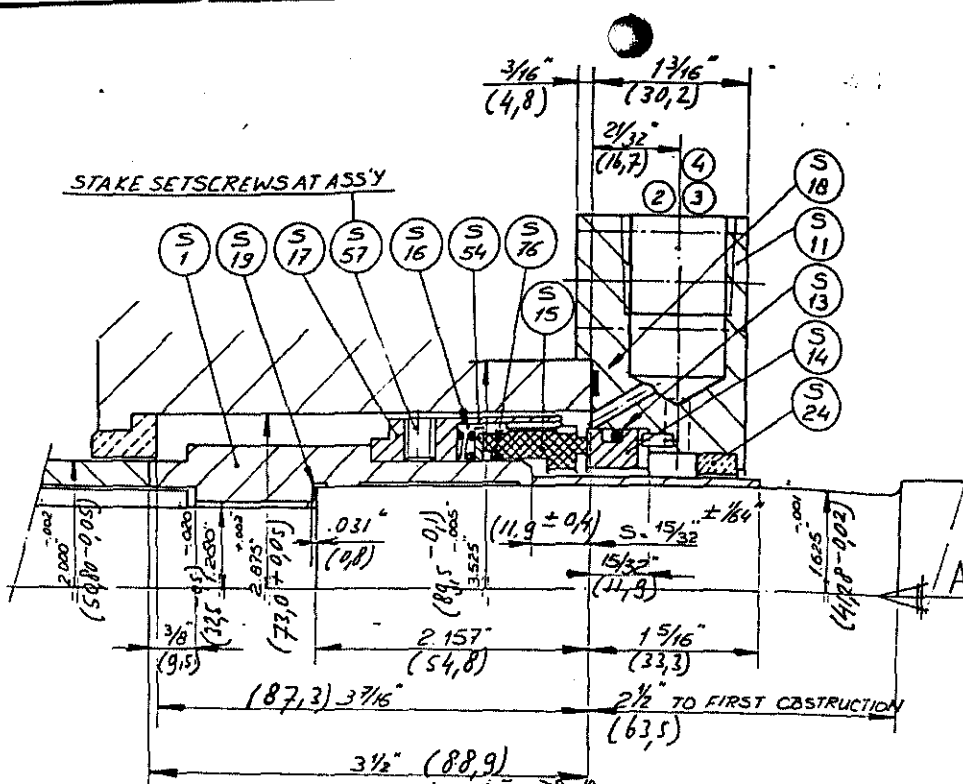 3/16" 1 3/16"
(4,8) (30,2)
21/32"
(16,7)
4
2 3
STAKE SETSCREWS AT ASS'Y
S 1
S 19
S 17
S 57
S 16
S 54
S 76
S 15
S 18
S 11
S 13
S 14
S 24
2.000" -.002
(50,80-0,05)
-.020
(32,5 -0,5)
2.875" +.002
(73,0+0,05)
.031"
(0,8)
(89,5 -0,1)
3.525" -.005
(11,9 ± 0,4) S = 15/32" ± 1/64"
15/32"
(11,9)
1.625" -.001
(41,28-0,02)
A
3/8"
(9,5)
2.157"
(54,8)
1 5/16"
(33,3)
(87,3) 3 7/16"
2 1/2" TO FIRST OBSTRUCTION
(63,5)
3 1/2" (88,9)